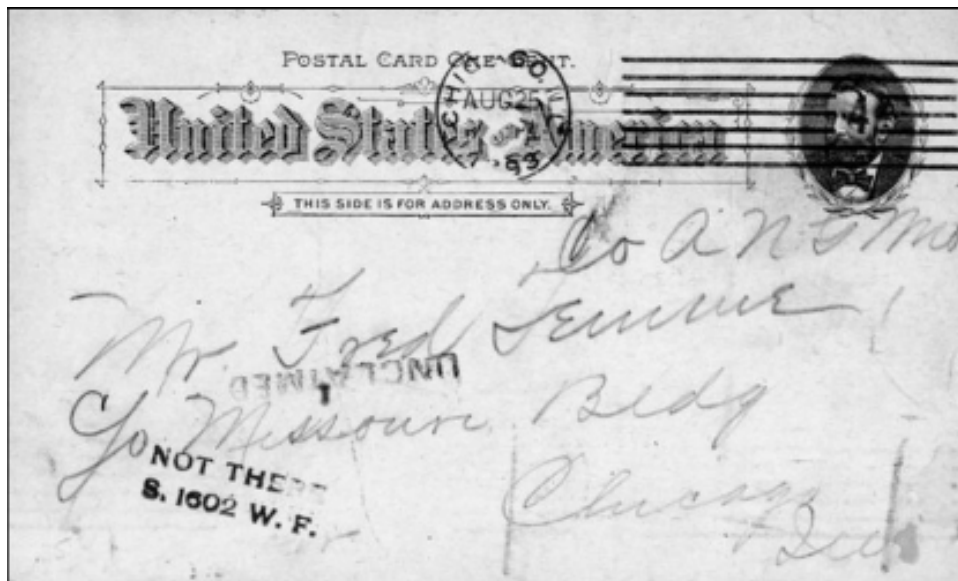 POSTAL CARD ONE CENT.
United States of America
CHICAGO, ILL.
AUG 25
93
4
THIS SIDE IS FOR ADDRESS ONLY.
Co A N G Mo
Mr. Fred Temme
C/o Missouri Bldg
UNCLAIMED
NOT THERE
S. 1602 W. F.
Chicago
Ill